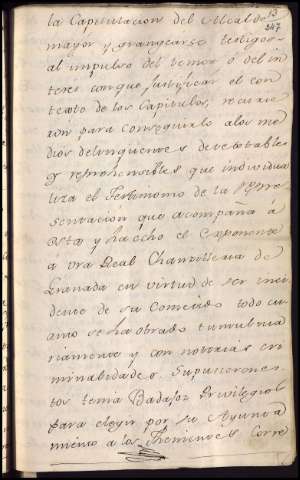 13
347
la Capitulacion del Alcalde
mayor y grangearse testigos
al impulso del temor o del in
teres con que justificar el con
texto de los Capitulos, recurrie
ron para conseguirlo a los me
dios delinquentes detestables
y reprehensibles que individua
liza el Testimonio de la Repre
sentacion que acompaña á
esta y ha echo el Exponente
a vra Real Chanzilleria de
Granada en virtud de ser inci
dente de su Cometido todo cu
anto se ha obrado tumultua
riamente y con notorias cri
minalidades. Suposiciones
tos tenia Badajoz Privilegios
para elegir por su Ayunta
miento a los Thenientes Corre